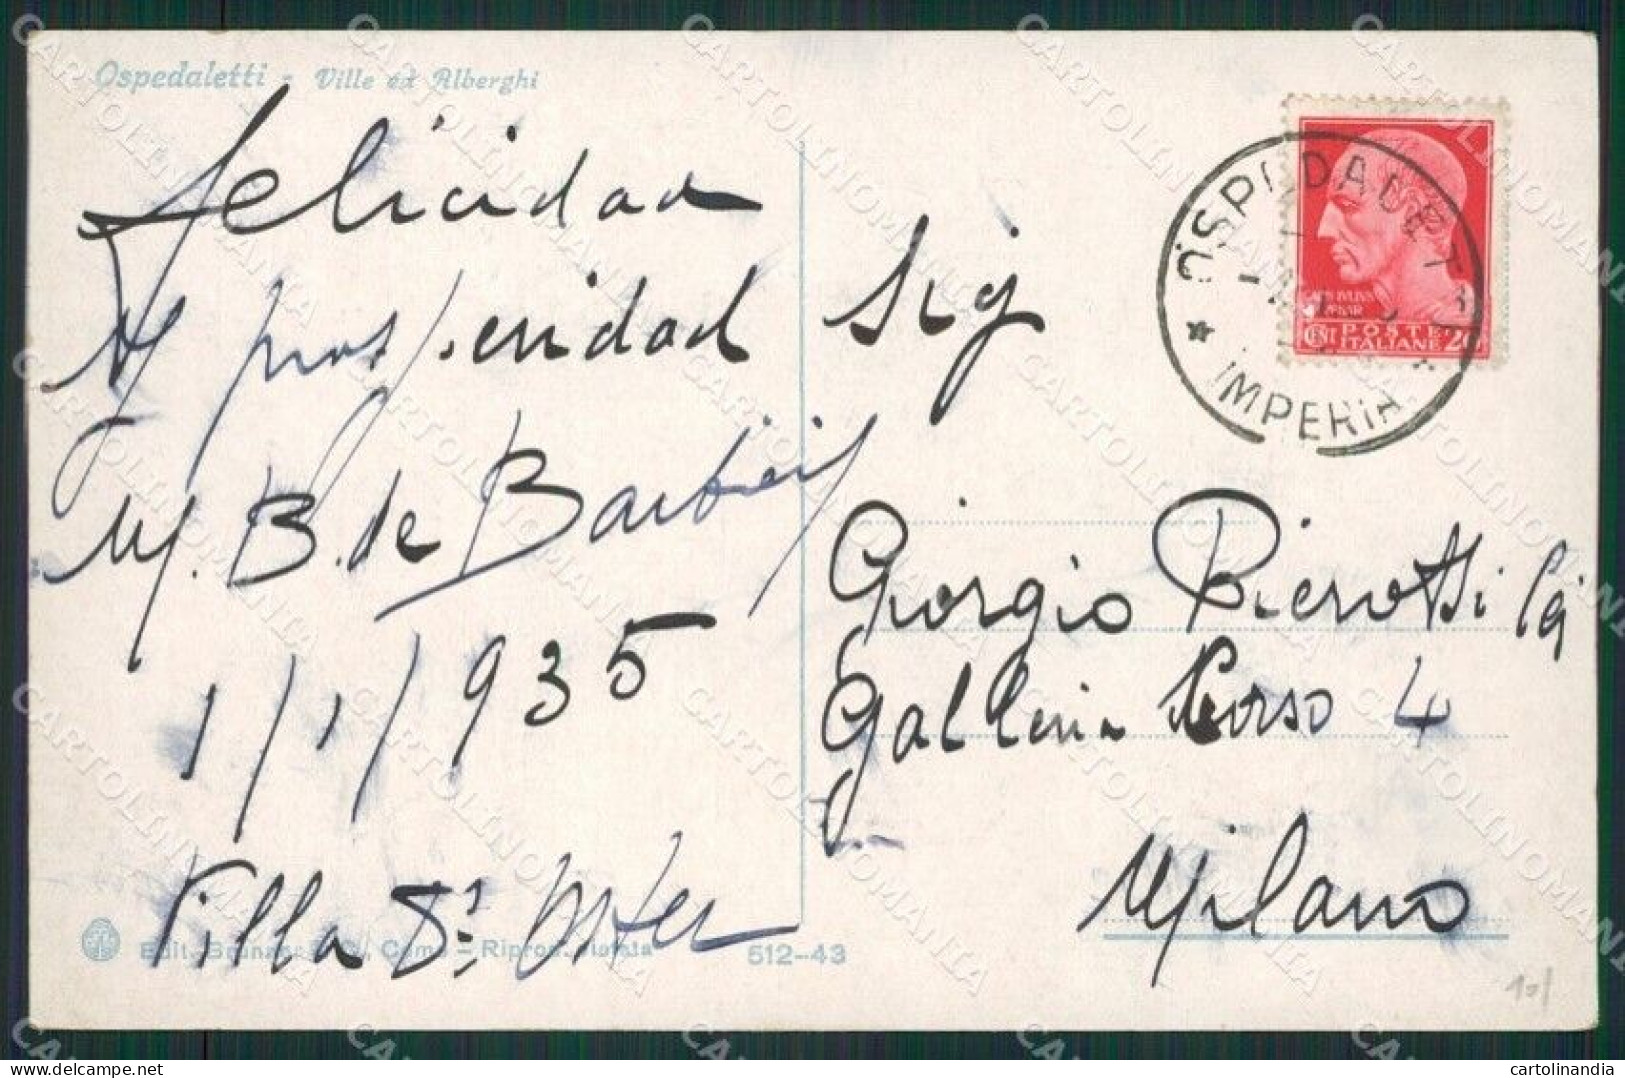 Ospedaletti - Ville ed Alberghi
Felicidad
y prosperidad
M. B. de
1/1/935
Villa Sa.
Sig
Giorgio Pierotti
Galleria Corso 4
Milano
IMPERIA
CENT POSTE ITALIANE 20
Edit. Brunner & C., Como - Riprod. vietata
512-43
10/
CARTOLINOMANIA
cartolinandia